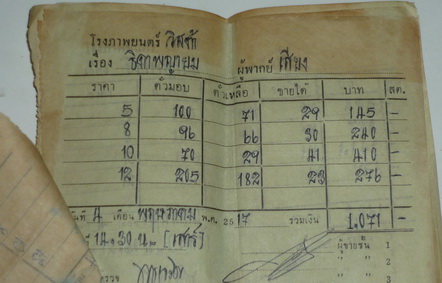 โรงภาพยนตร์ วิสต้า
เรื่อง ธิดาพญายม ผู้พากย์ เสียง
ราคา ตั๋วมอบ ตั๋วเหลือ ขายได้ บาท สต.
5 100 71 29 145 -
8 96 66 30 240 -
10 70 29 41 410 -
12 205 182 23 276 -
วันที่ 4 เดือน พฤษภาคม พ.ศ. 2517 รวมเงิน 1.071 -
14.30 น. [เสาร์] ผู้ขายชั้น 1
" " 2
" " 3
ตรวจ